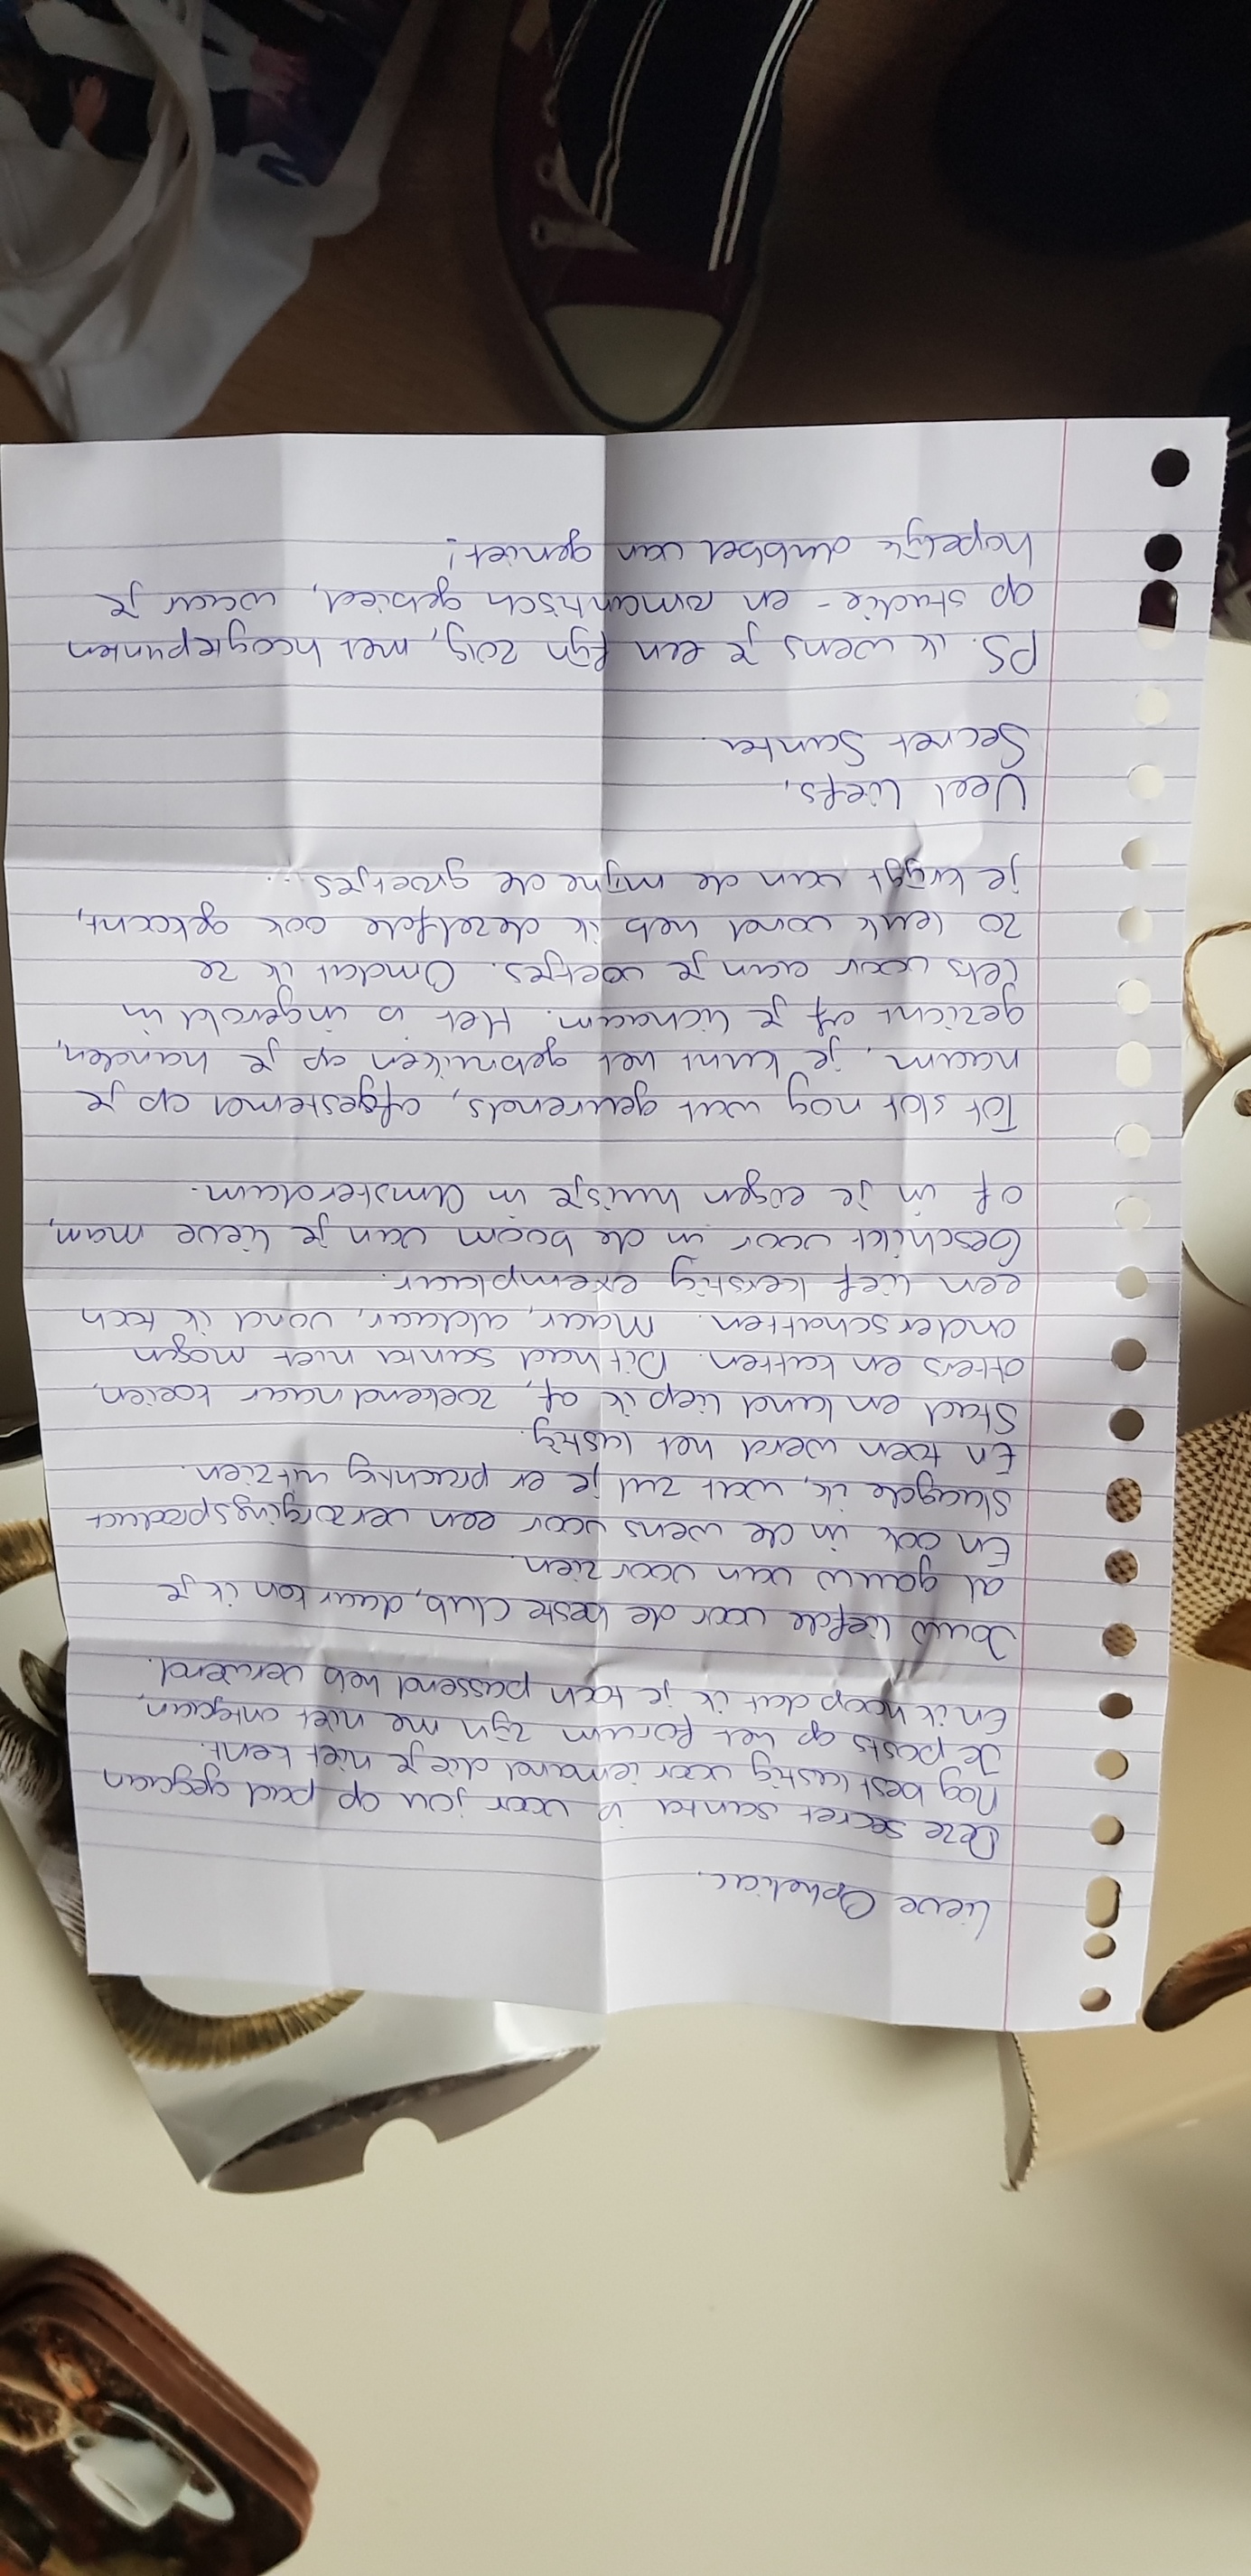 Lieve Opheliac,
Deze secret santa is voor jou op pad gegaan
Nog best lastig voor iemand die je niet kent.
Je posts op het forum zijn me niet ontgaan,
En ik hoop dat ik je toch passend heb verwend.
Jouw liefde voor de beste club, daar kon ik je
al gauw van voorzien.
En ook in de wens voor een verzorgingsproduct
slaagde ik, wat zul je er prachtig uitzien.
En toen werd het lastig.
Stad en land liep ik af, zoekend naar koeien,
otters en katten. Dit had santa niet mogen
onderschatten. Maar, aldaar, vond ik toch
een lief kerstig exemplaar.
Geschikt voor in de boom van je lieve mam,
of in je eigen huisje in Amsterdam.
Tot slot nog wat geurends, afgestemd op je
naam, je kunt het gebruiken op je handen,
gezicht of je lichaam. Het is ingerold in
iets voor aan je voetjes. Omdat ik ze
zo leuk vond heb ik dezelfde ook gekocht,
je krijgt van de mijne de groetjes...
Veel liefs,
Secret Santa.
PS. ik wens je een fijn 2019, met hoogtepunten
op studie- en romantisch gebied, waar je
hopelijk dubbel van geniet!